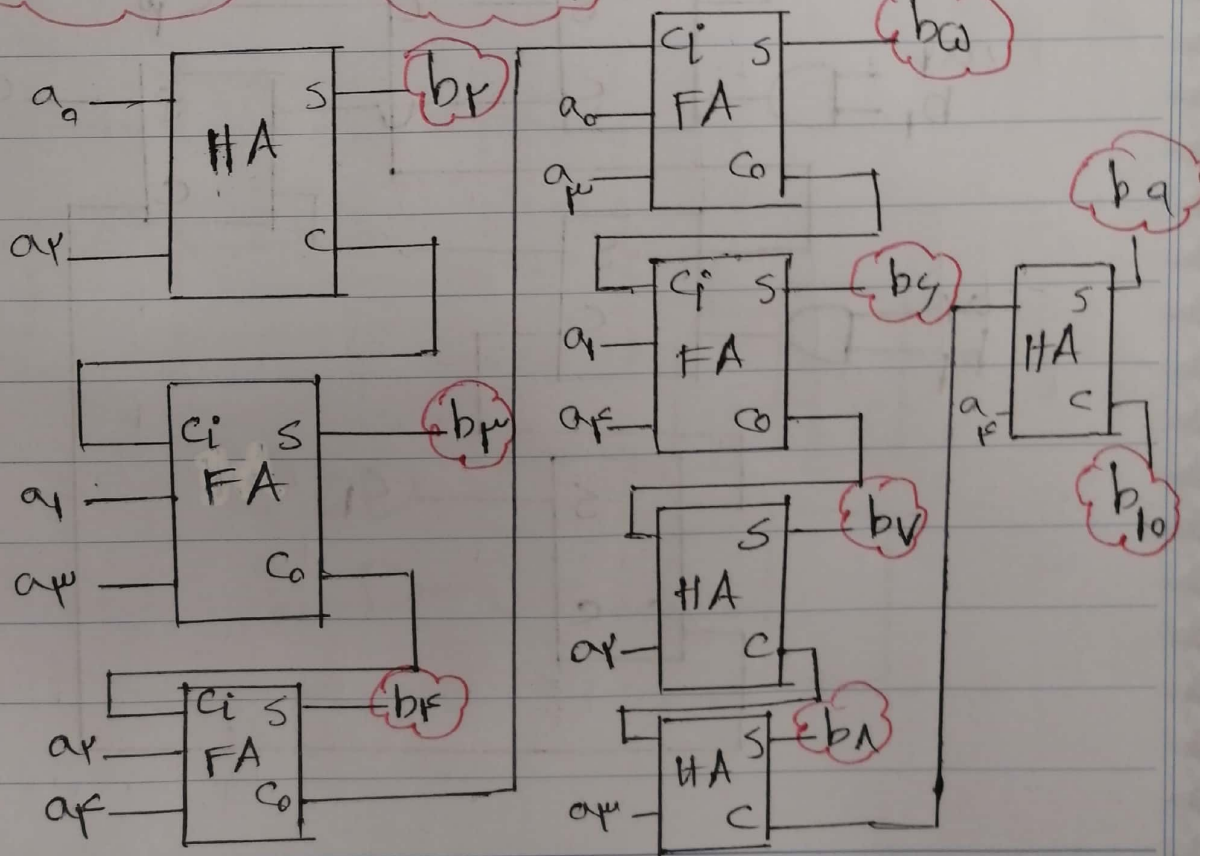 a₀
HA
S
b۲
a۲
C
Ci
S
b۳
a۱
FA
a۳
Co
Ci
S
b۴
a۲
FA
a۴
Co
Ci
S
b۵
a₀
FA
a۳
Co
Ci
S
b۶
a۱
FA
a۴
Co
S
b۷
HA
a۲
C
S
b۸
HA
a۳
C
b۹
S
HA
a۴
C
b۱۰